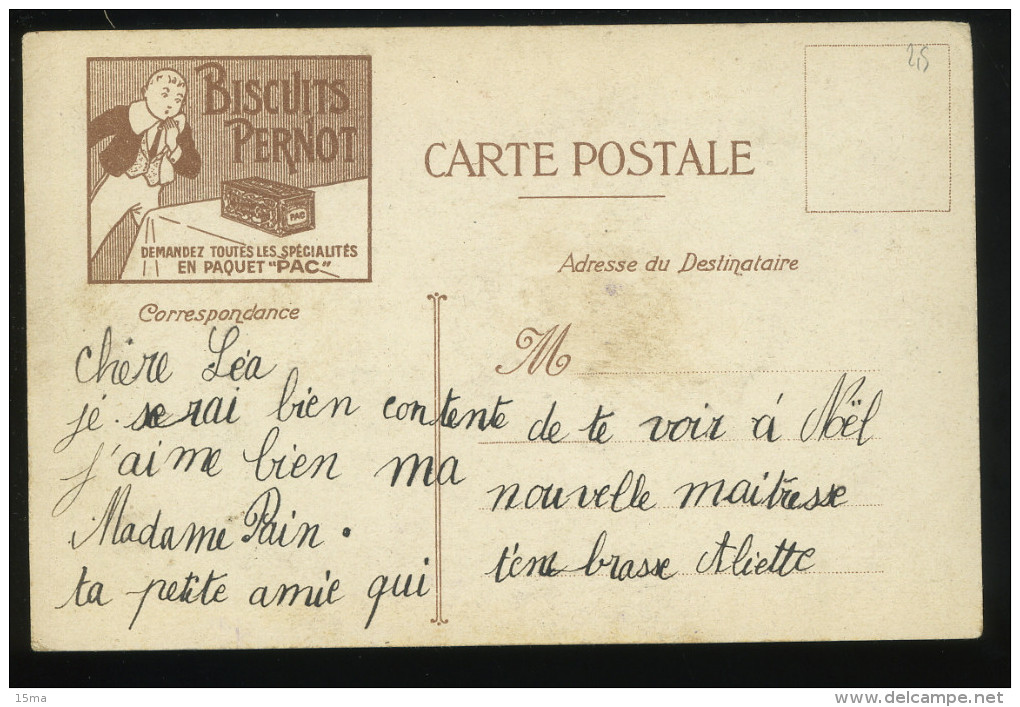 BISCUITS
PERNOT
PAC
DEMANDEZ TOUTES LES SPÉCIALITÉS
EN PAQUET "PAC"
CARTE POSTALE
25
Adresse du Destinataire
Correspondance
M
chère Léa
je serai bien contente de te voir á Noël
j'aime bien ma nouvelle maitresse
Madame Pain.
ta petite amie qui t'embrasse Aliette
15ma
delcampe.net